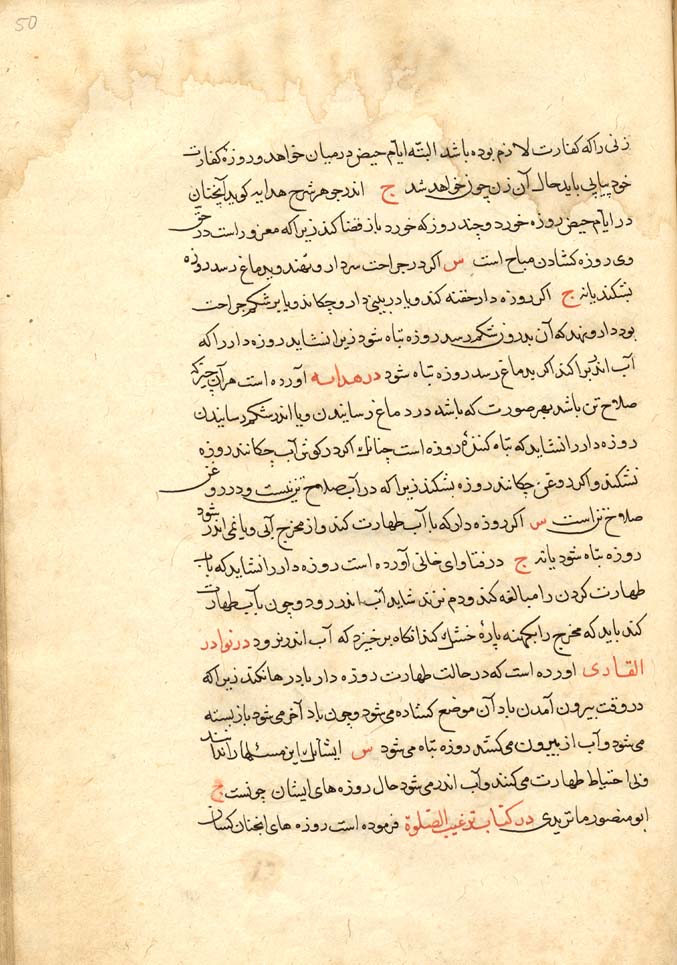 50
زنی را که کفارت لازم بوده باشد البته ایام حیض درمیان خواهد و روزه کفارت
خود پیاپی باید حال آن زن چون خواهد شد ج اندر جوهر شرح هدایه کوید آنچنان
در ایام حیض روزه خورد و چند روز که خورد باز قضا کند زیرا که معزور است در حق
وی روزه کشادن مباح است س اکر در جراحت سر دارو نهند و بدماغ رسد روزه
بشکند یا نه ج اکر روزه دار حقنه کند و یا در بینی دارو چکاند و یا بر شکم جراحت
بود دارو نهد که آن بدرون شکم رسد روزه تباه شود زیرا نشاید روزه دار را که
آب اندر کند اکر بدماغ رسد روزه تباه شود در هدایه آورده است هر آن چیز که
صلاح تن باشد بهر صورت که باشد در دماغ رسانیدن و یا اندر شکم رسانیدن
روزه دار را نشاید که تباه کننده روزه است چنانک اکر در کوش آب چکانند روزه
نشکند و اکر روغن چکانند روزه بشکند زیرا که در آب صلاح تن نیست و در روغن
صلاح تن است س اکر روزه دار که با آب طهارت کند و از مخرج آبی و یا نمی اندر شود
روزه تباه شود یا نه ج در فتاوای خانی آورده است روزه دار را نشاید که با آب
طهارت کردن را مبالغه کند و دم نزند شاید آب اندر رود و چون با آب طهارت
کند باید که مخرج را بکهنه پاره خشک کند انکاه برخیزد که آب اندر نرود در نوادر
القادی اورده است که در حالت طهارت روزه دار باد رها نکند زیرا که
در وقت بیرون آمدن باد آن موضع کشاده می شود و چون باد آخر می شود باز بسته
می شود و آب از بیرون می کشد روزه تباه می شود س ایشانک این مسئلها را ندانند
و بی احتیاط طهارت می کنند و آب اندر می شود حال روزه های ایشان چونست ج
ابو منصور ماتریدی در کتاب ترغیب الصلوة فرموده است روزه های انچنان کسان